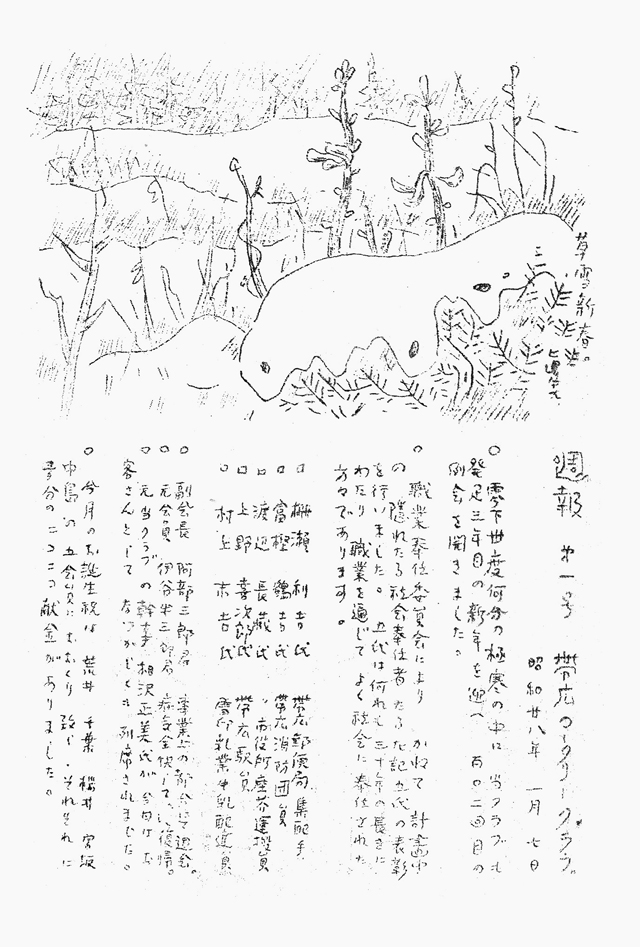 草雪新春。
週報 第一号 帯広ロータリークラブ。
昭和廿八年 一月 七日
○ 零下廿度何分の極寒の中に 当クラブも
発足三年目の新年を迎へ 百〇二回目の
例会を開きました。
○ 職業奉仕委員会により かねて 計画中
の隠れたる社会奉仕者たる左記五氏の表彰
を行いました。 五氏は何れも三十年の長きに
わたり 職業を通じてよく社会に奉仕された
方々であります。
□ 柵瀬 利吉氏 帯広郵便局集配手
□ 富樫 鶴吉氏 帯広消防団員
□ 渡辺 長蔵氏 市役所塵芥運搬員
□ 上野 幸次郎氏 帯広駅員
□ 村上 末吉氏 雪印乳業牛乳配達員
○ 副会長 阿部三郎君 事業上の都合にて退会。
○ 元会員 伊谷半三郎君 病気全快して、復帰。
○ 元当クラブの幹事 相沢正美氏が今日はお
客さんとして なつかしくも列席されました。
○ 今月のお誕生祝は 荒井 千葉 桜井 宮坂
中島の五会員におおくり致し、それぞれに
応分のニコニコ献金がありました。